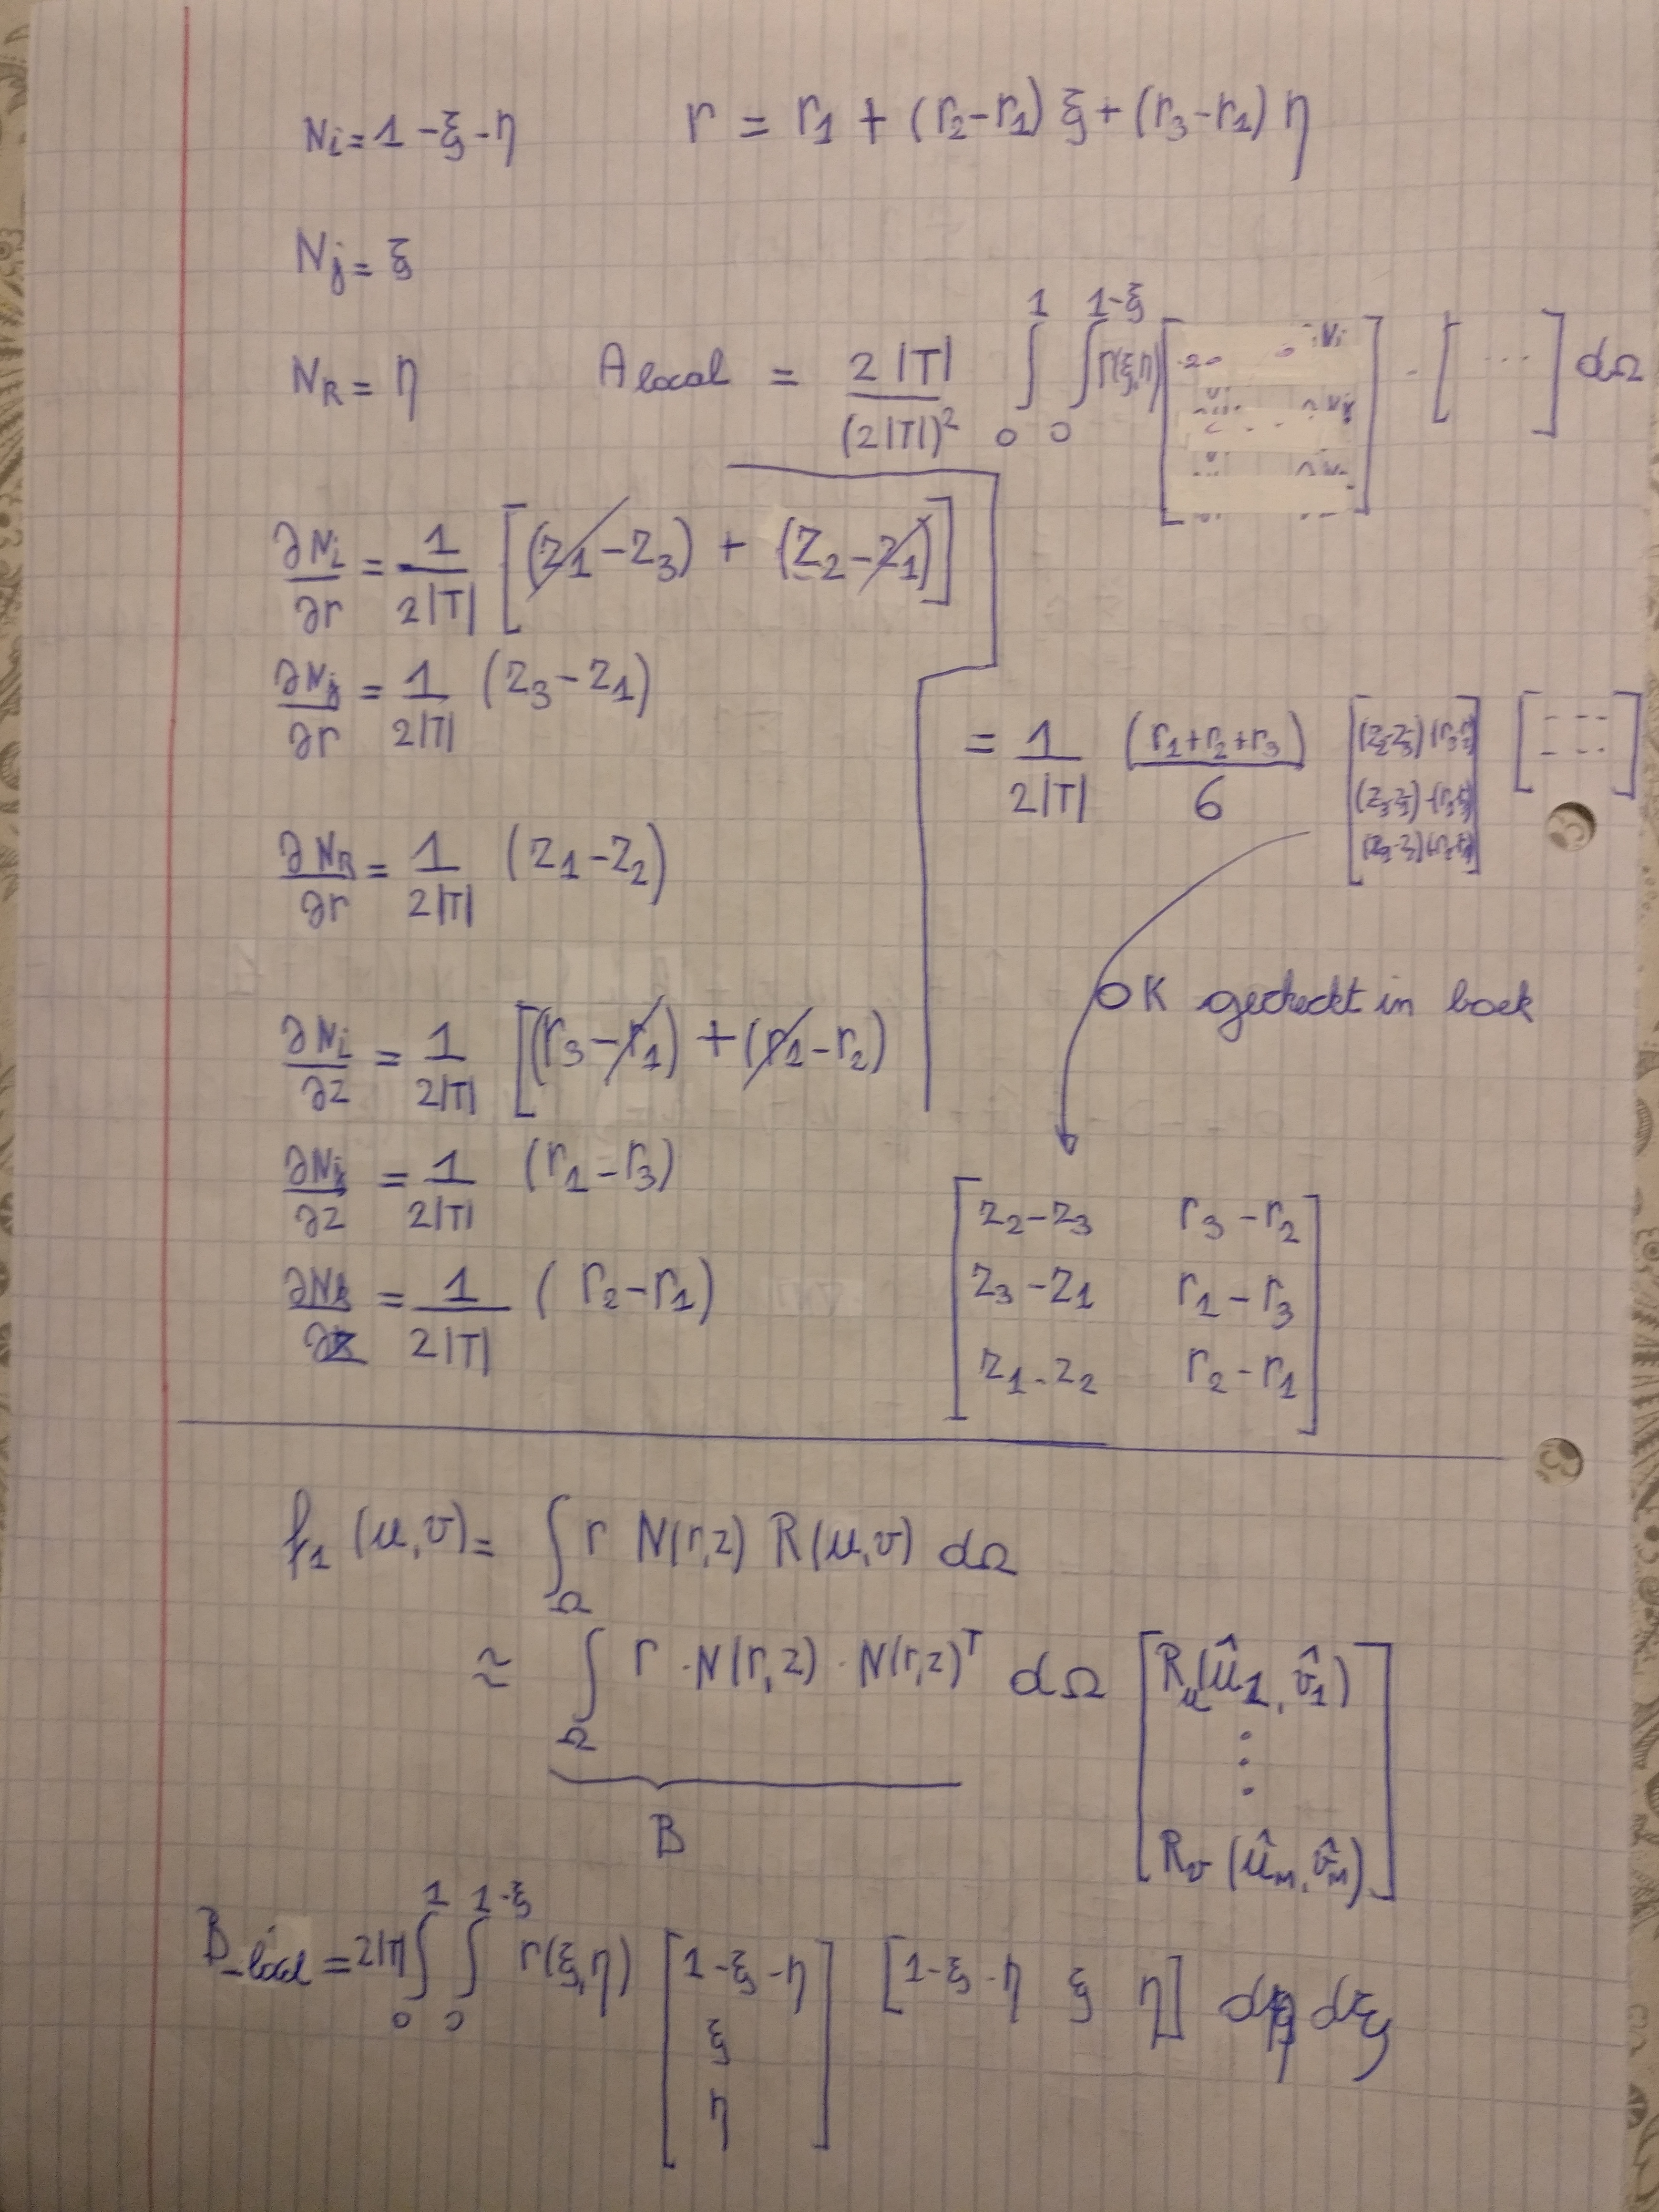 N_i = 1 - ξ - η
r = r_1 + (r_2 - r_1) ξ + (r_3 - r_1) η
N_j = ξ
N_k = η
A_local = 2|T| / (2|T|)^2 ∫_0^1 ∫_0^{1-ξ} r(ξ,η) [ ] · [ ... ] dΩ
∂N_i/∂r = 1/2|T| [(z_1 - z_3) + (z_2 - z_1)]
∂N_j/∂r = 1/2|T| (z_3 - z_1)
= 1/2|T| (r_1 + r_2 + r_3)/6 [(z_2 - z_3) (r_3 - r_2)] [- - -]
∂N_k/∂r = 1/2|T| (z_1 - z_2)
OK gecheckt in boek
∂N_i/∂z = 1/2|T| [(r_3 - r_1) + (r_1 - r_2)
∂N_j/∂z = 1/2|T| (r_1 - r_3)
∂N_k/∂z = 1/2|T| (r_2 - r_1)
[z_2 - z_3 r_3 - r_2
z_3 - z_1 r_1 - r_3
z_1 - z_2 r_2 - r_1]
f_1 (u,v) = ∫_Ω r N(r,z) R(u,v) dΩ
≈ ∫_Ω r · N(r,z) · N(r,z)^T dΩ [R_u(û_1, v̂_1)
⋮
R_v (û_M, v̂_M)]
B
B_local = 2|T| ∫_0^1 ∫_0^{1-ξ} r(ξ,η) [1-ξ-η
ξ
η] [1-ξ-η ξ η] dη dξ